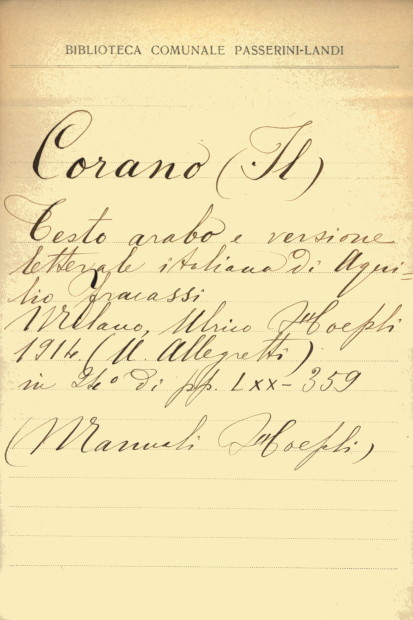 BIBLIOTECA COMUNALE PASSERINI-LANDI
Corano (Il)
Testo arabo e versione
letterale italiana di Aqui-
lio Fracassi
Milano, Ulrico Hoepli
1914. (U. Allegretti)
in 24° di pp. LXX-359
(Manuali Hoepli)